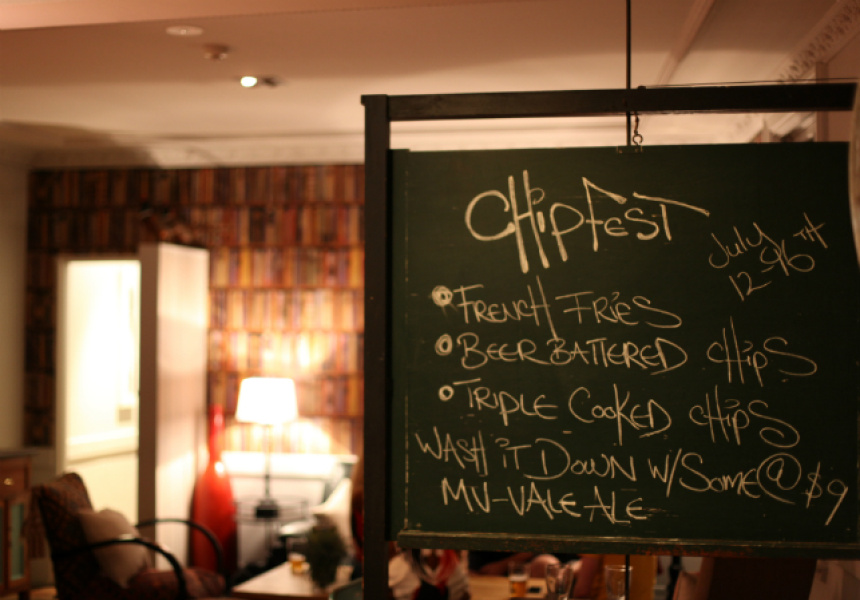 CHipFesT
July
12-96TH
FRENCH FRiES
BEER BATTERED CHiPS
TRiPLE COOKED CHiPS
WASH iT DOWN W/SOME@$9
MV-VALE ALE